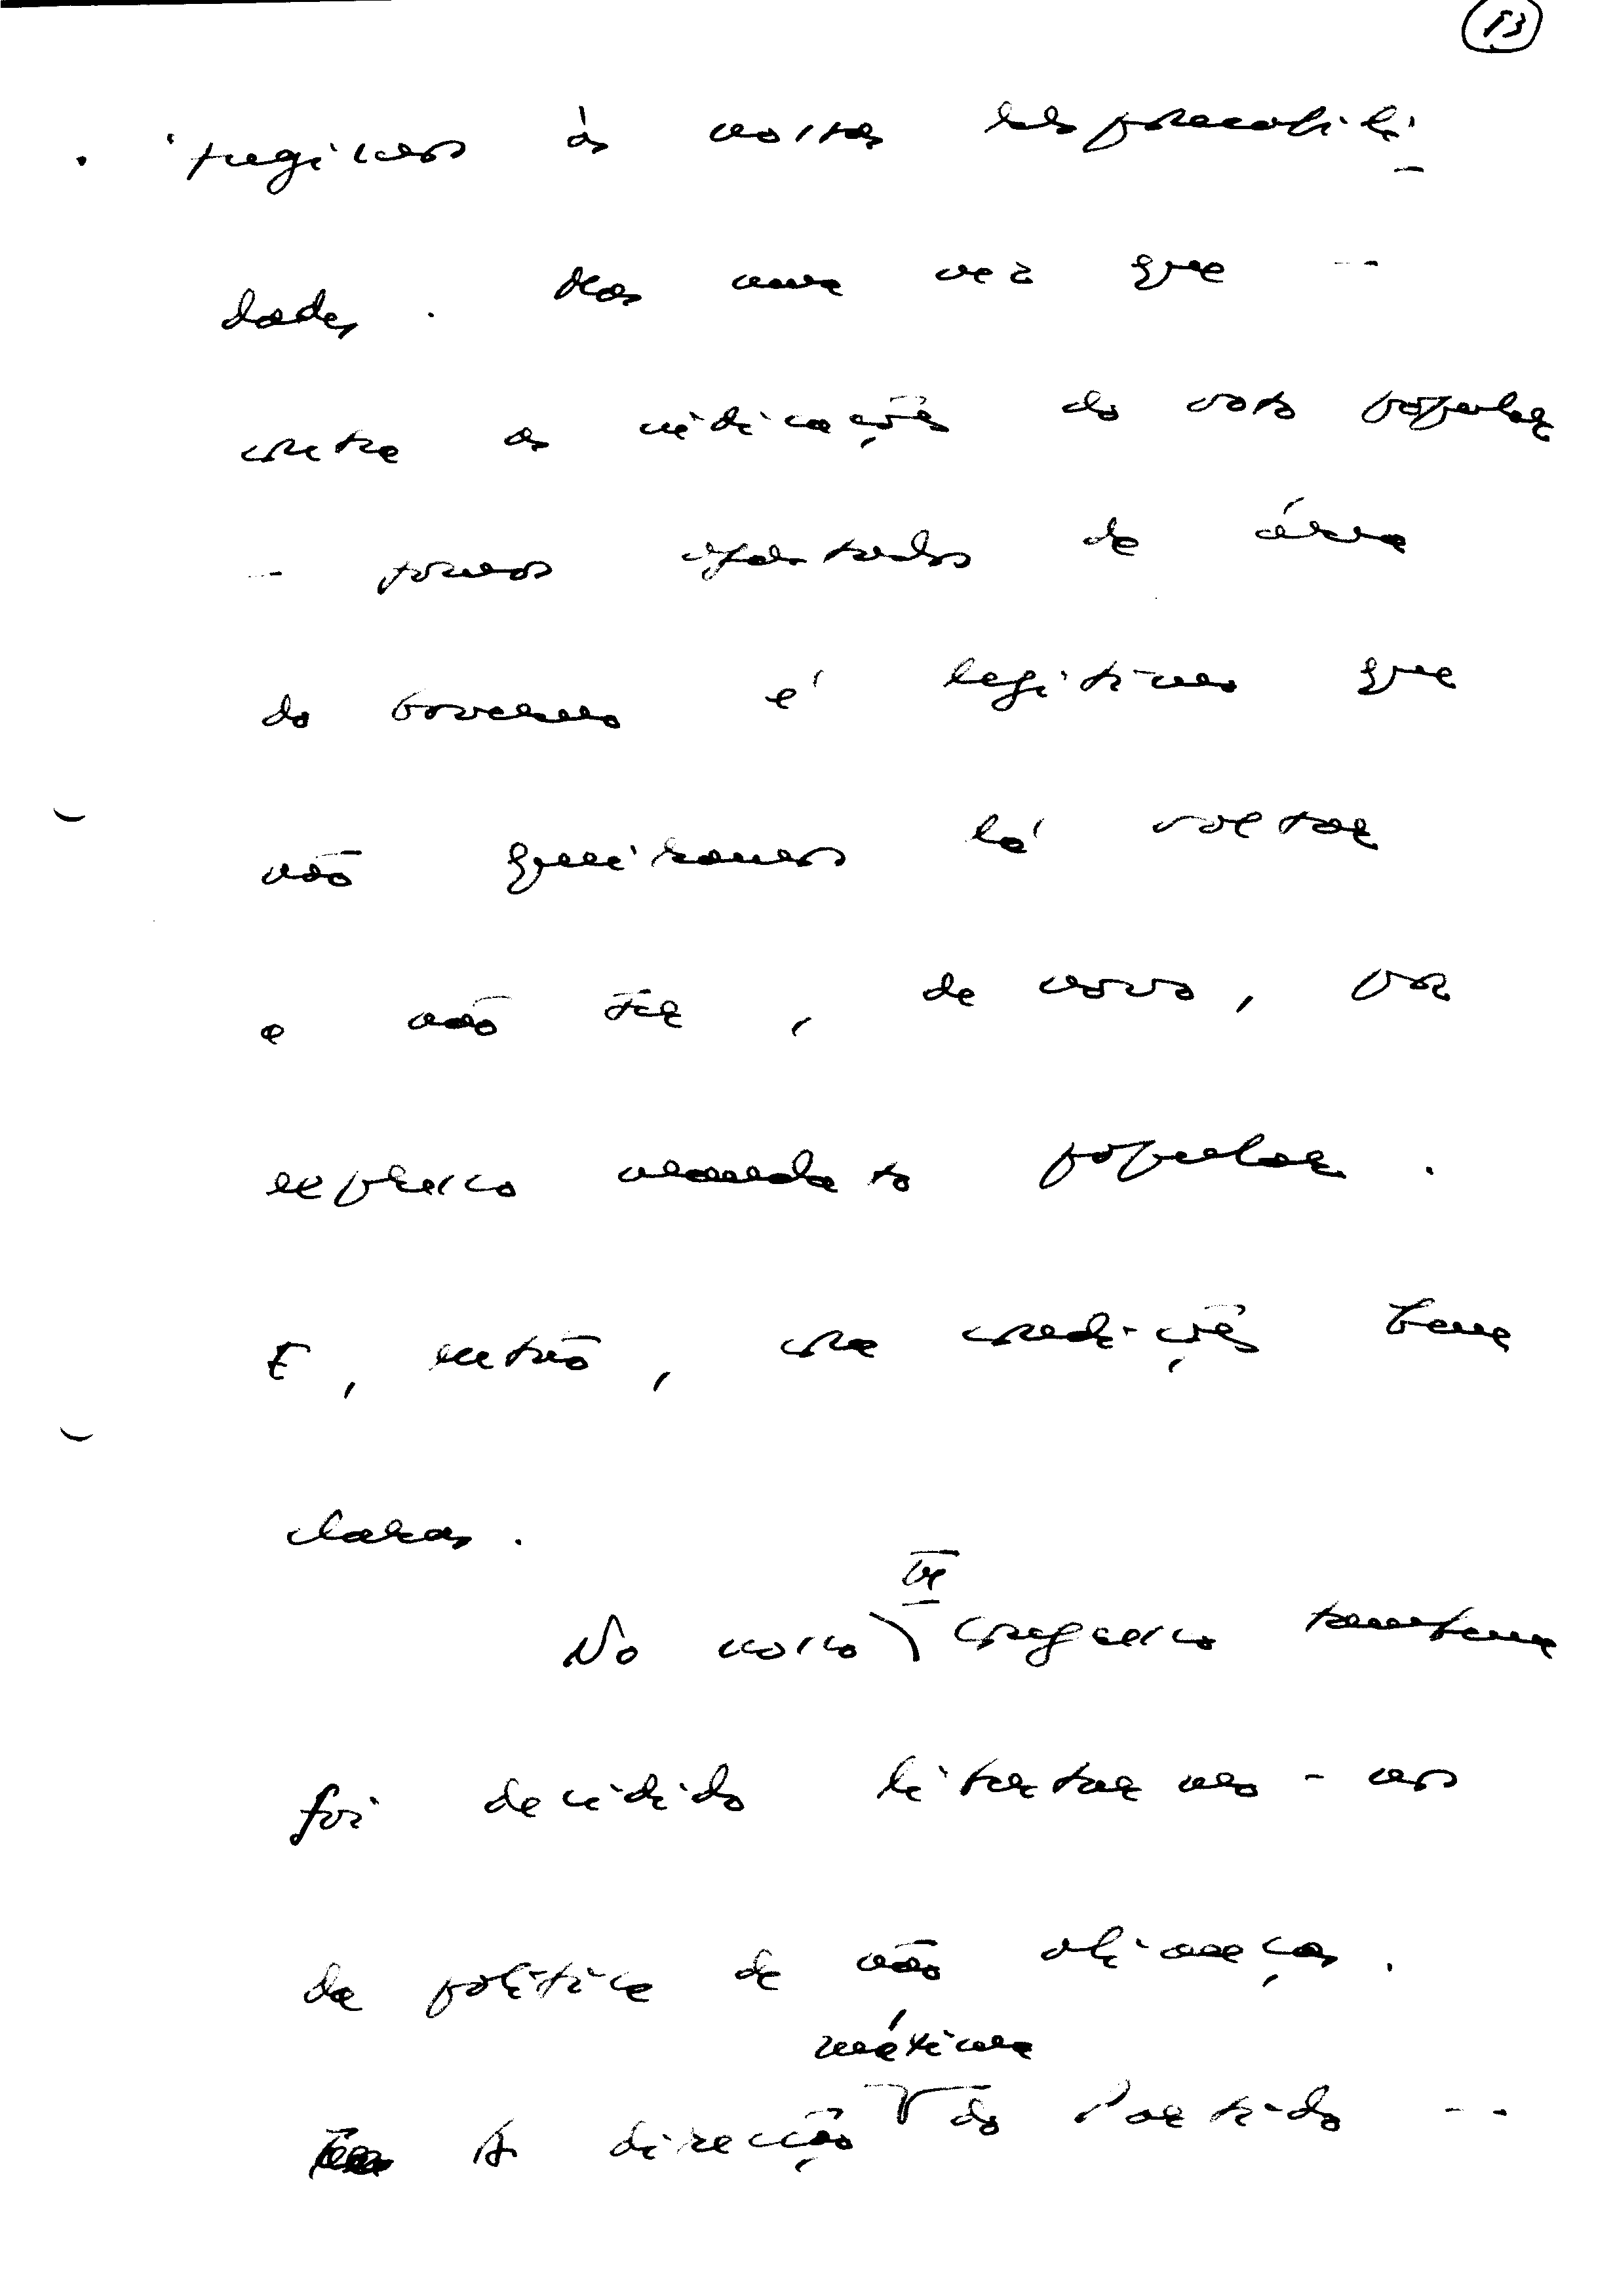 13
fugimos às nossas responsabili-
dades. Mas uma vez que --
contra as indicações do voto popular
-- fomos afastados da área
do Governo é legítimo que
não queiramos lá voltar
a não ser, de novo, por
expresso mandato popular.
E, então, com condições bem
claras.
No nosso IV Congresso também
foi decidido libertarmo-nos
da política de não alianças.
A direcção máxima do Partido --